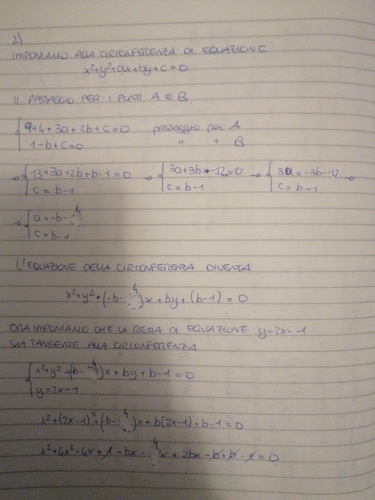 2)
IMPONIAMO ALLA CIRCONFERENZA DI EQUAZIONE
x²+y²+ax+by+c=0
IL PASSAGGIO PER I PUNTI A E B
{9+4+3a+2b+c=0 passaggio per A
{1-b+c=0 " " B
→ {13+3a+2b+b-1=0 → {3a+3b+12=0 → {3a=-3b-12 →
{c=b-1 {c=b-1 {c=b-1
→ {a=-b-4
{c=b-1
L'EQUAZIONE DELLA CIRCONFERENZA DIVENTA
x²+y²+(-b-4)x+by+(b-1)=0
ORA IMPONIAMO CHE LA RETTA DI EQUAZIONE y=2x-1
SIA TANGENTE ALLA CIRCONFERENZA
{x²+y²+(b-4)x+by+b-1=0
{y=2x-1
x²+(2x-1)²+(b-4)x+b(2x-1)+b-1=0
x²+4x²-4x+1-bx-4x+2bx-b+b-1=0